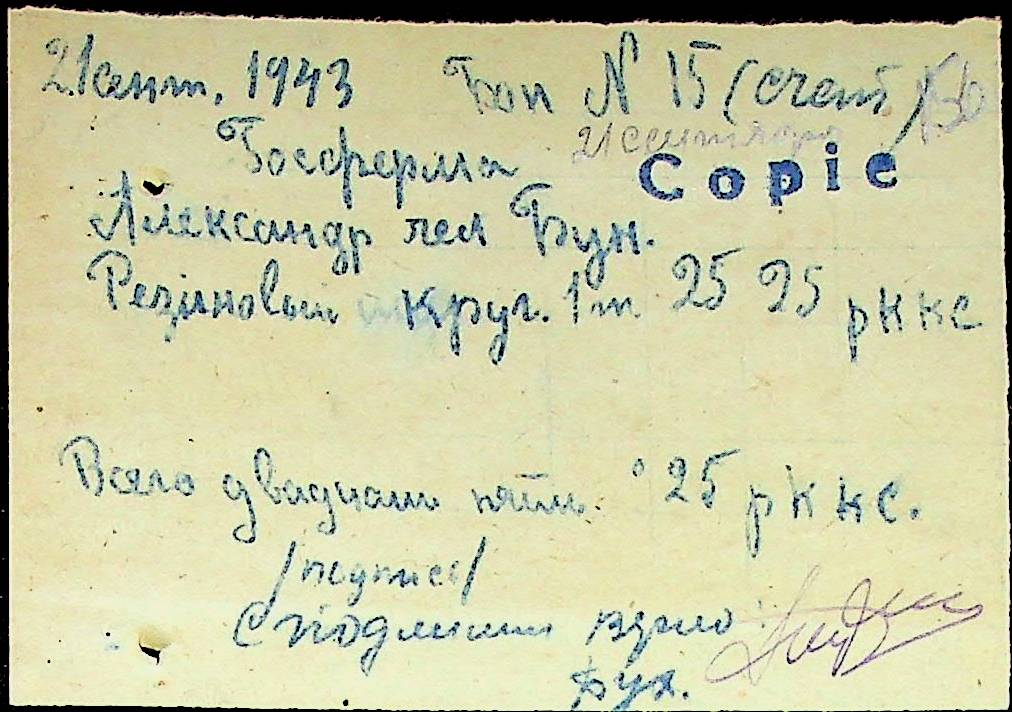 21 сент. 1943 Бон N 15 (счет)
21 сентября
Copie
Босферма
Александр чел Бун.
Резиновый круг. 1 т 25 25 рККС
Всего двадцать пять 25 рККС.
/подпис/
С подлиным верно:
Бух.